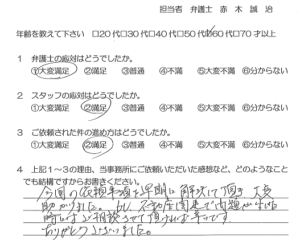 担当者 弁護士 赤木 誠治
年齢を教えて下さい □20代□30代□40代□50代□60代□70才以上
1 弁護士の応対はどうでしたか。
①大変満足 ②満足 ③普通 ④不満 ⑤大変不満 ⑥分からない
2 スタッフの応対はどうでしたか。
①大変満足 ②満足 ③普通 ④不満 ⑤大変不満 ⑥分からない
3 ご依頼された件の進め方はどうでしたか。
①大変満足 ②満足 ③普通 ④不満 ⑤大変不満 ⑥分からない
4 上記1～3の理由、当事務所にご依頼いただいた感想など、どのようなこと
でも結構ですからお書きください。
今回の依頼事項を早期に解決して頂き 大変
助かりました。 不動産関連で問題が
時にはご相談させて頂ければ幸いです
ありがとうございました。